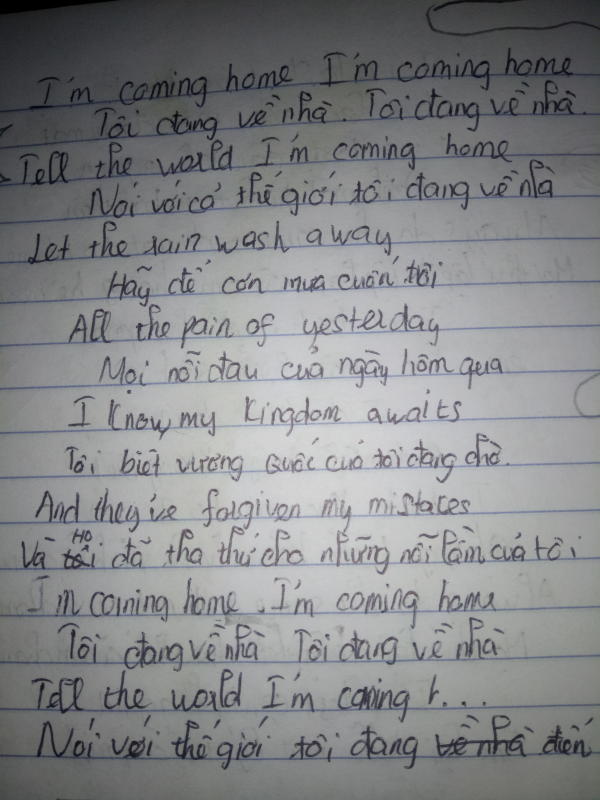 I'm coming home I'm coming home
Tôi đang về nhà. Tôi đang về nhà.
Tell the world I'm coming home
Nói với cả thế giới tôi đang về nhà
Let the rain wash away
Hãy để cơn mưa cuốn trôi
All the pain of yesterday
Mọi nỗi đau của ngày hôm qua
I know, my kingdom awaits
Tôi biết vương quốc của tôi đang chờ.
And they've forgiven my mistaces
Và tôi Họ đã tha thứ cho những nỗi lầm của tôi
I'm coming home. I'm coming home
Tôi đang về nhà Tôi đang về nhà
Tell the world I'm coming h...
Nói với thế giới tôi đang về nhà điến